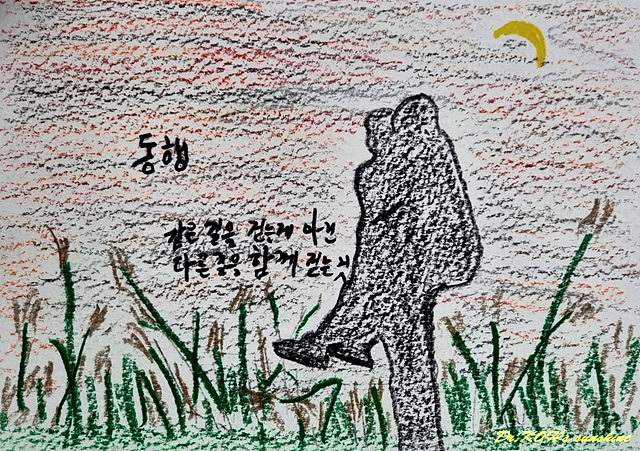 동행
같은 길을 걷는게 아닌
다른 길을 함께 걷는 것
Dr.KOH's sunshine